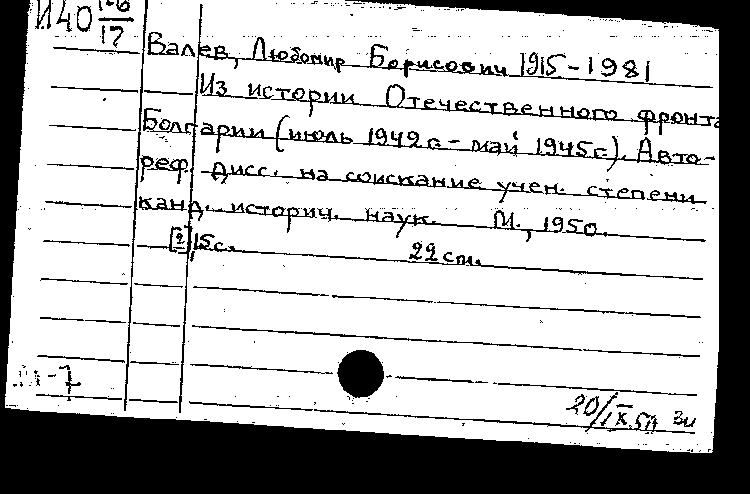 И40 1-6/17
Валев, Любомир Борисович 1915-1981
Из истории Отечественного фронта
Болгарии (июль 1942 г. - май 1945 г.). Авто-
реф. дисс. на соискание учен. степени
канд. историч. наук. М., 1950.
[2], 15 с. 22 см.
-7
20/IX.51